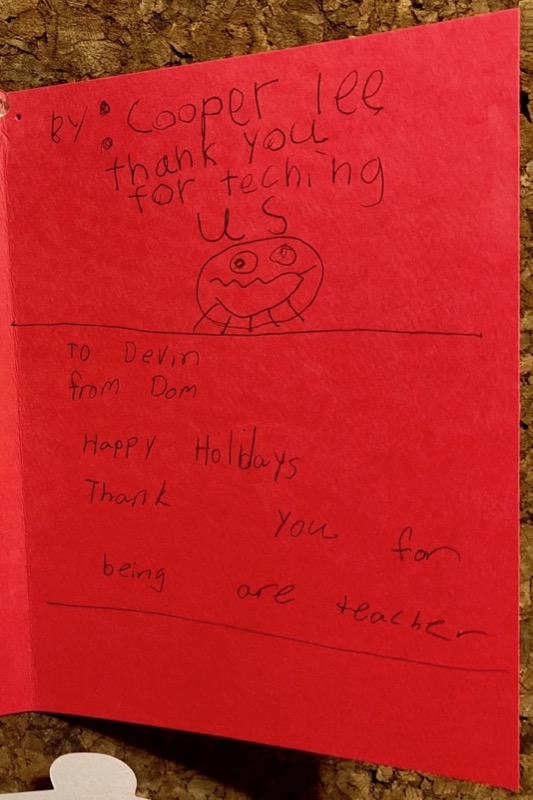 BY: Cooper lee
thank you
for teching
us
To Devin
from Dom
Happy Holidays
Thank
you for
being are teacher